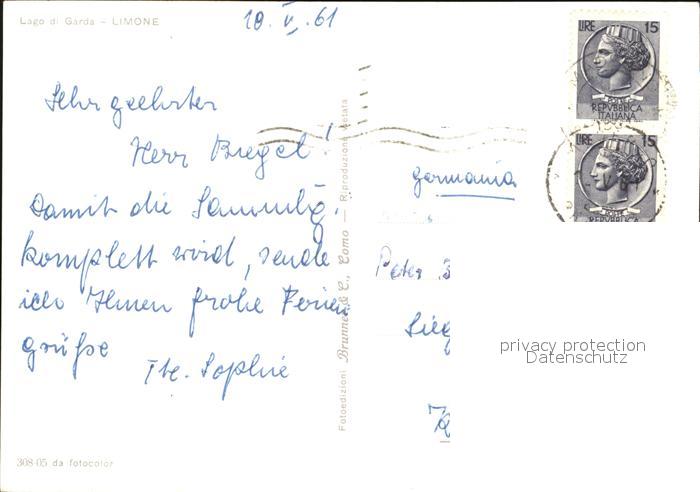 Lago di Garda – LIMONE
18. V. 61
Sehr geehrter
Herr Bregel!
Damit die Sammlg.
komplett wird, sende
ich Ihnen frohe Ferien
grüße
Ihre Sophie
308-05 da fotocolor
Fotoedizioni Brunner & C., Como — Riproduzione vietata
LIRE 15
REPVBBLICA
ITALIANA
LIRE 15
REPVBBLICA
germania
Peter
Sieg
privacy protection
Datenschutz